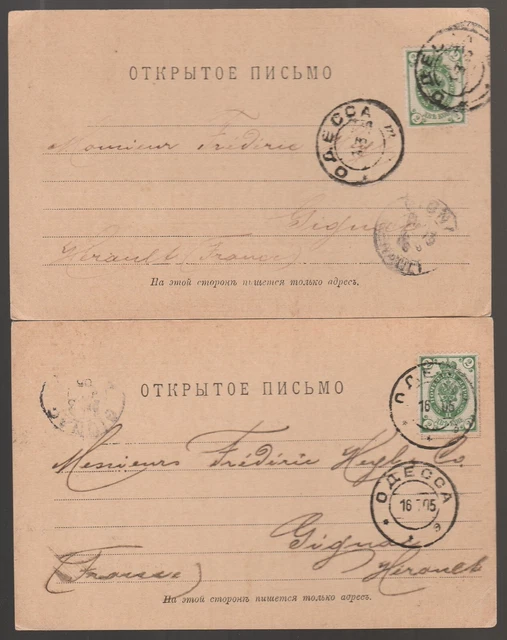 ОТКРЫТОЕ ПИСЬМО
ОДЕС
ОДЕССА
Monsieur Frédéric
Gignac
Hérault, France
На этой сторонѣ пишется только адресъ.
ОТКРЫТОЕ ПИСЬМО
ОДЕ
16 05
Messieurs Frédéric & Co.
ОДЕССА
16 05
Gignac
(France) Hérault
На этой сторонѣ пишется только адресъ.